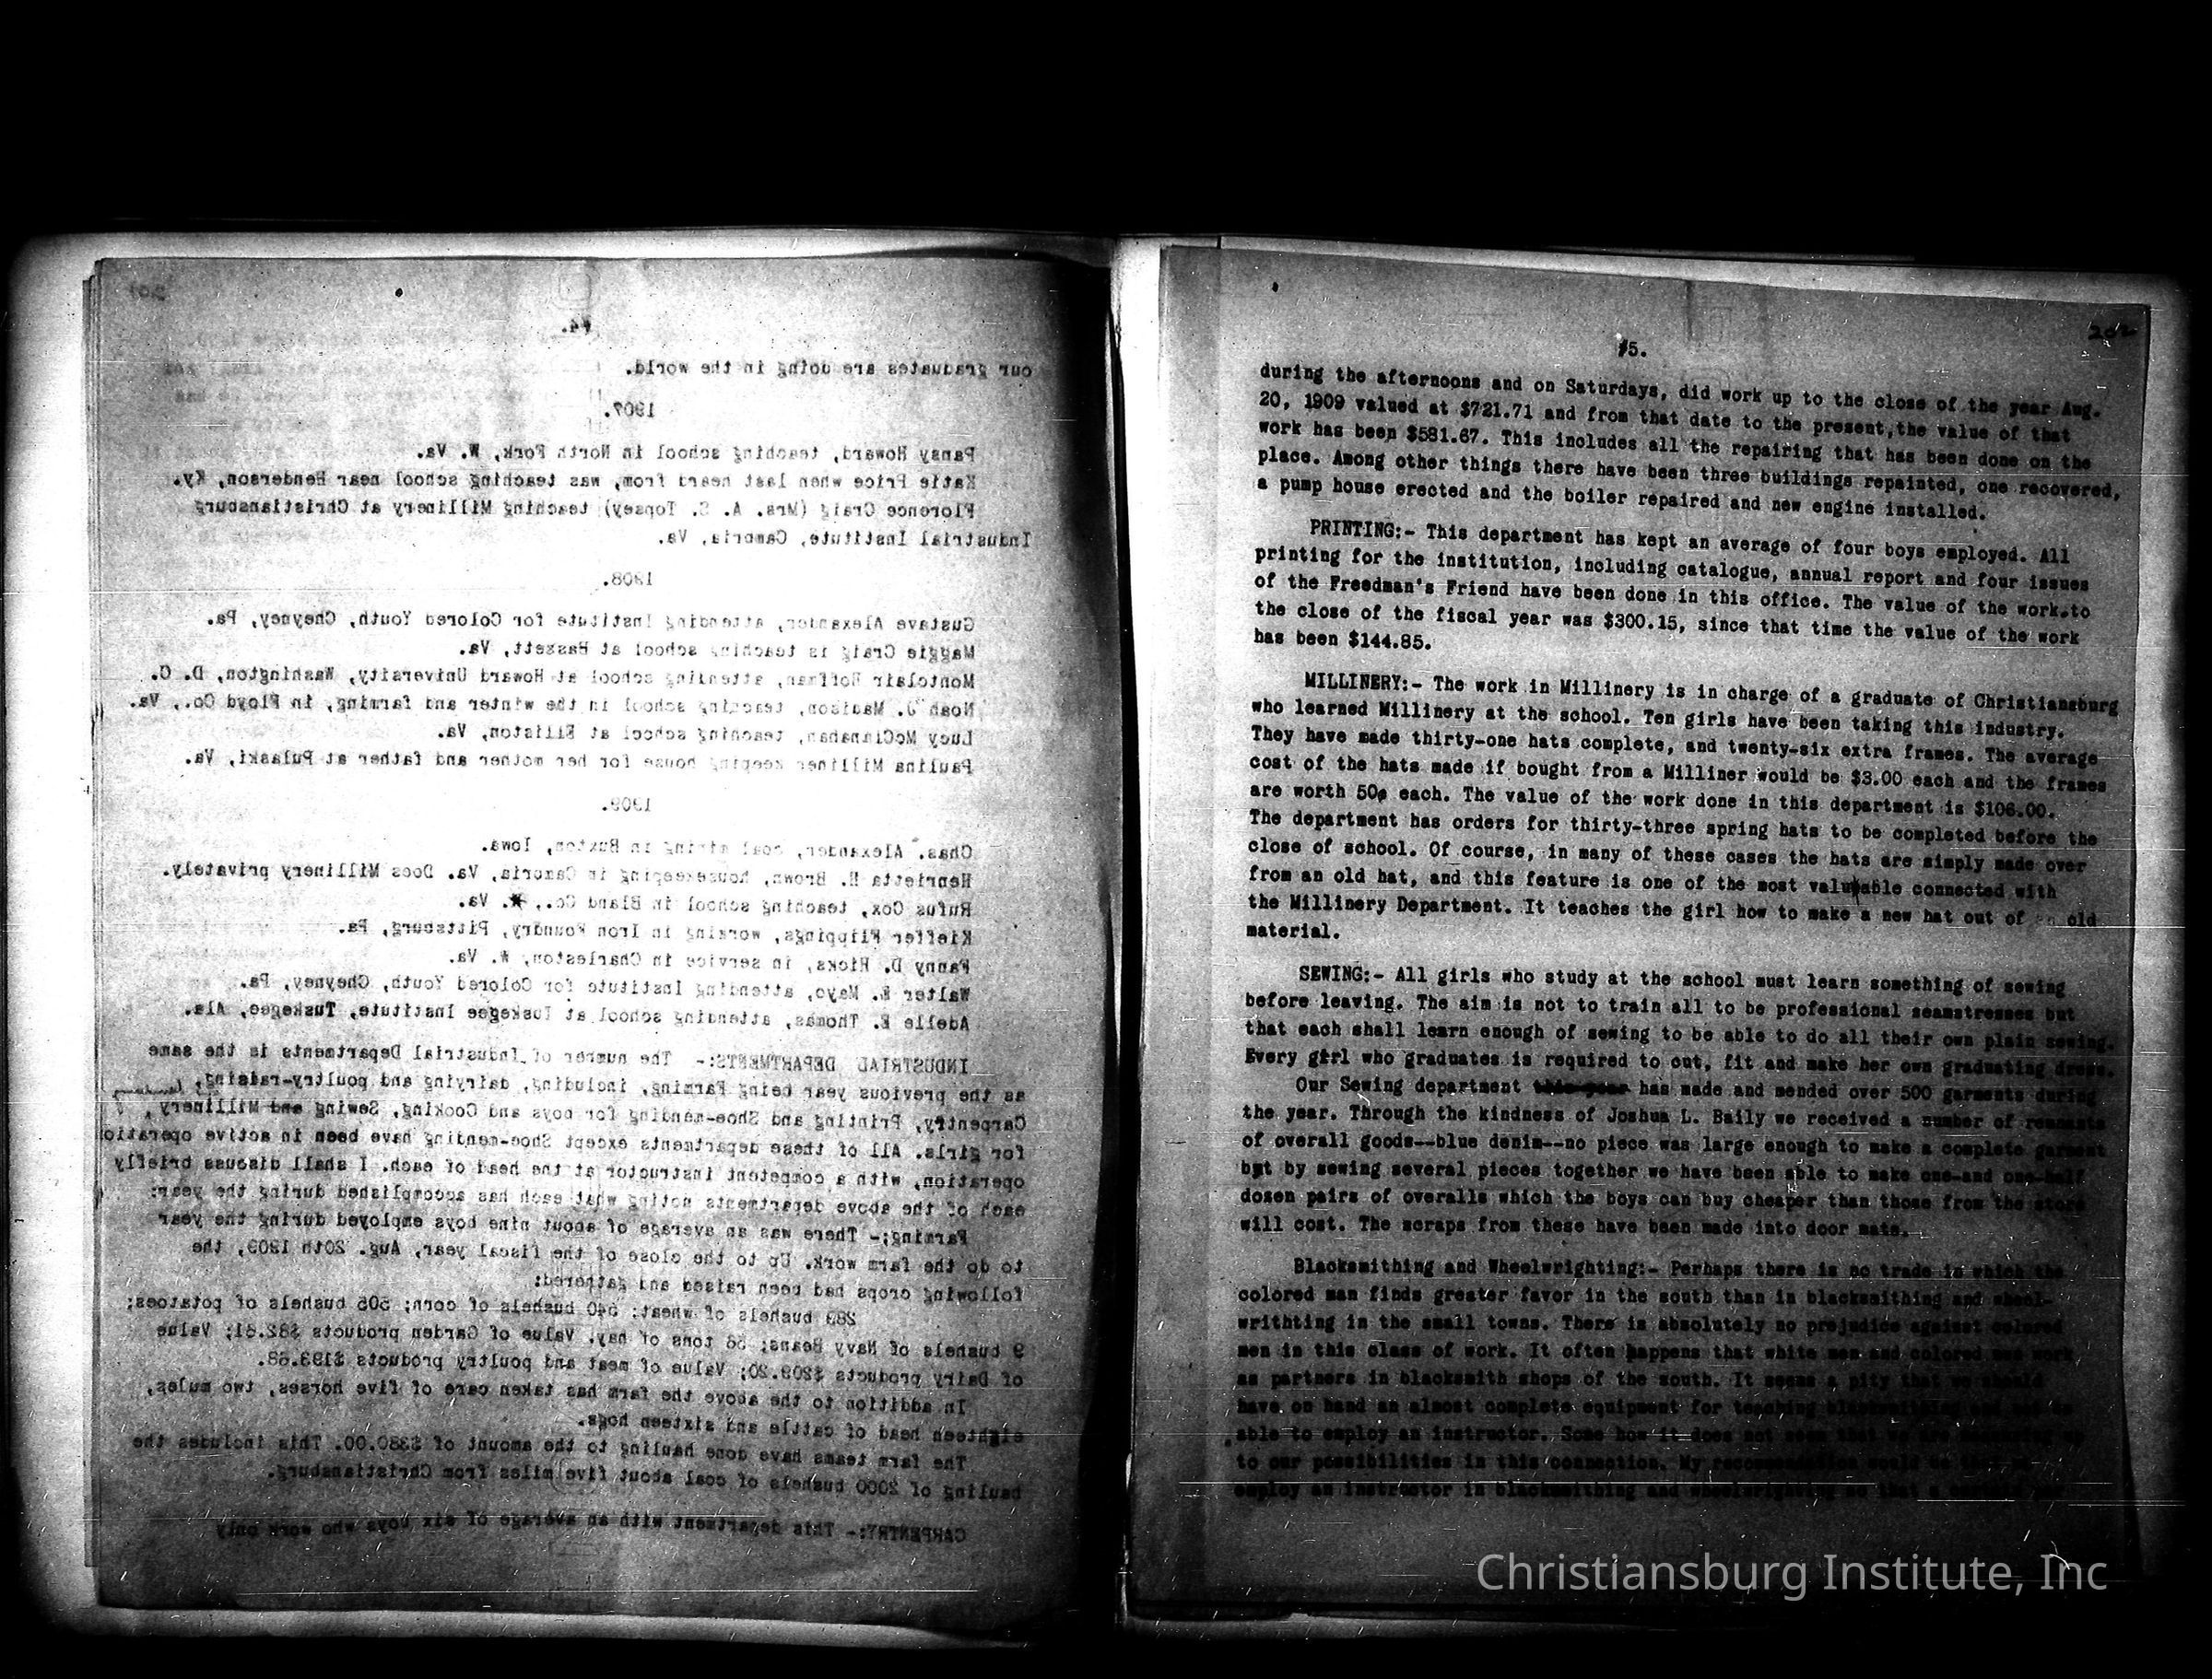 201
#4.
our graduates are doing in the world.
1907.
Pansy Howard, teaching school in North Fork, W. Va.
Katie Price when last heard from, was teaching school near Henderson, Ky.
Florence Craig (Mrs. A. C. Topsey) teaching Millinery at Christiansburg
Industrial Institute, Cambria, Va.
1908.
Gustave Alexander, attending Institute for Colored Youth, Cheyney, Pa.
Maggie Craig is teaching school at Bassett, Va.
Montclair Hoffman, attending school at Howard University, Washington, D. C.
Noah J. Madison, teaching school in the winter and farming, in Floyd Co., Va.
Lucy McClanahan, teaching school at Elliston, Va.
Paulina Milliner keeping house for her mother and father at Pulaski, Va.
1909.
Chas. Alexander, coal mining in Buxton, Iowa.
Henrietta H. Brown, housekeeping in Cambria, Va. Does Millinery privately.
Rufus Cox, teaching school in Bland Co., Va.
Kieffer Flippings, working in Iron Foundry, Pittsburg, Pa.
Fanny D. Hicks, in service in Charleston, W. Va.
Walter E. Mayo, attending Institute for Colored Youth, Cheyney, Pa.
Adelle E. Thomas, attending school at Tuskegee Institute, Tuskegee, Ala.
INDUSTRIAL DEPARTMENTS:- The number of Industrial Departments is the same
as the previous year being Farming, including, dairying and poultry-raising,
Carpentry, Printing and Shoe-mending for boys and Cooking, Sewing and Millinery, Laundering
for girls. All of these departments except Shoe-mending have been in active operatio
operation, with a competent instructor at the head of each. I shall discuss briefly
each of the above departments noting what each has accomplished during the year:
Farming;- There was an average of about nine boys employed during the year
to do the farm work. Up to the close of the fiscal year, Aug. 20th 1909, the
following crops had been raised and gathered:
289 bushels of wheat; 540 bushels of corn; 505 bushels of potatoes;
9 bushels of Navy Beans; 56 tons of hay. Value of Garden products $82.61; Value
of Dairy products $209.20; Value of meat and poultry products $193.68.
In addition to the above the farm has taken care of five horses, two mules,
eighteen head of cattle and sixteen hogs.
The farm teams have done hauling to the amount of $380.00. This includes the
hauling of 2000 bushels of coal about five miles from Christiansburg.
CARPENTRY:- This department with an average of six boys who work only
202
#5.
during the afternoons and on Saturdays, did work up to the close of the year Aug.
20, 1909 valued at $721.71 and from that date to the present,the value of that
work has been $581.67. This includes all the repairing that has been done on the
place. Among other things there have been three buildings repainted, one recovered,
a pump house erected and the boiler repaired and new engine installed.
PRINTING:- This department has kept an average of four boys employed. All
printing for the institution, including catalogue, annual report and four issues
of the Freedman's Friend have been done in this office. The value of the work.to
the close of the fiscal year was $300.15, since that time the value of the work
has been $144.85.
MILLINERY:- The work in Millinery is in charge of a graduate of Christiansburg
who learned Millinery at the school. Ten girls have been taking this industry.
They have made thirty-one hats complete, and twenty-six extra frames. The average
cost of the hats made if bought from a Milliner would be $3.00 each and the frames
are worth 50¢ each. The value of the work done in this department is $106.00.
The department has orders for thirty-three spring hats to be completed before the
close of school. Of course, in many of these cases the hats are simply made over
from an old hat, and this feature is one of the most valuable connected with
the Millinery Department. It teaches the girl how to make a new hat out of an old
material.
SEWING:- All girls who study at the school must learn something of sewing
before leaving. The aim is not to train all to be professional seamstresses but
that each shall learn enough of sewing to be able to do all their own plain sewing.
Every girl who graduates is required to cut, fit and make her own graduating dress.
Our Sewing department this year has made and mended over 500 garments during
the year. Through the kindness of Joshua L. Baily we received a number of remnants
of overall goods--blue denim--no piece was large enough to make a complete garment
but by sewing several pieces together we have been able to make one-and one-half
dosen pairs of overalls which the boys can buy cheaper than those from the store
will cost. The scraps from these have been made into door mats.
Blacksmithing and Wheelwrighting:- Perhaps there is no trade in which the
colored man finds greater favor in the south than in blacksmithing and wheel-
writhting in the small towns. There is absolutely no prejudice against colored
men in this class of work. It often happens that white men and colored men work
as partners in blacksmith shops of the south. It seems a pity that we should
have on hand an almost complete equipment for teaching blacksmithing and not be
able to employ an instructor. Some how it does not seem that we are
to our possibilities in this connection. My recommendation would be that we
employ an instructor in blacksmithing and wheelwrighting so that a
Christiansburg Institute, Inc